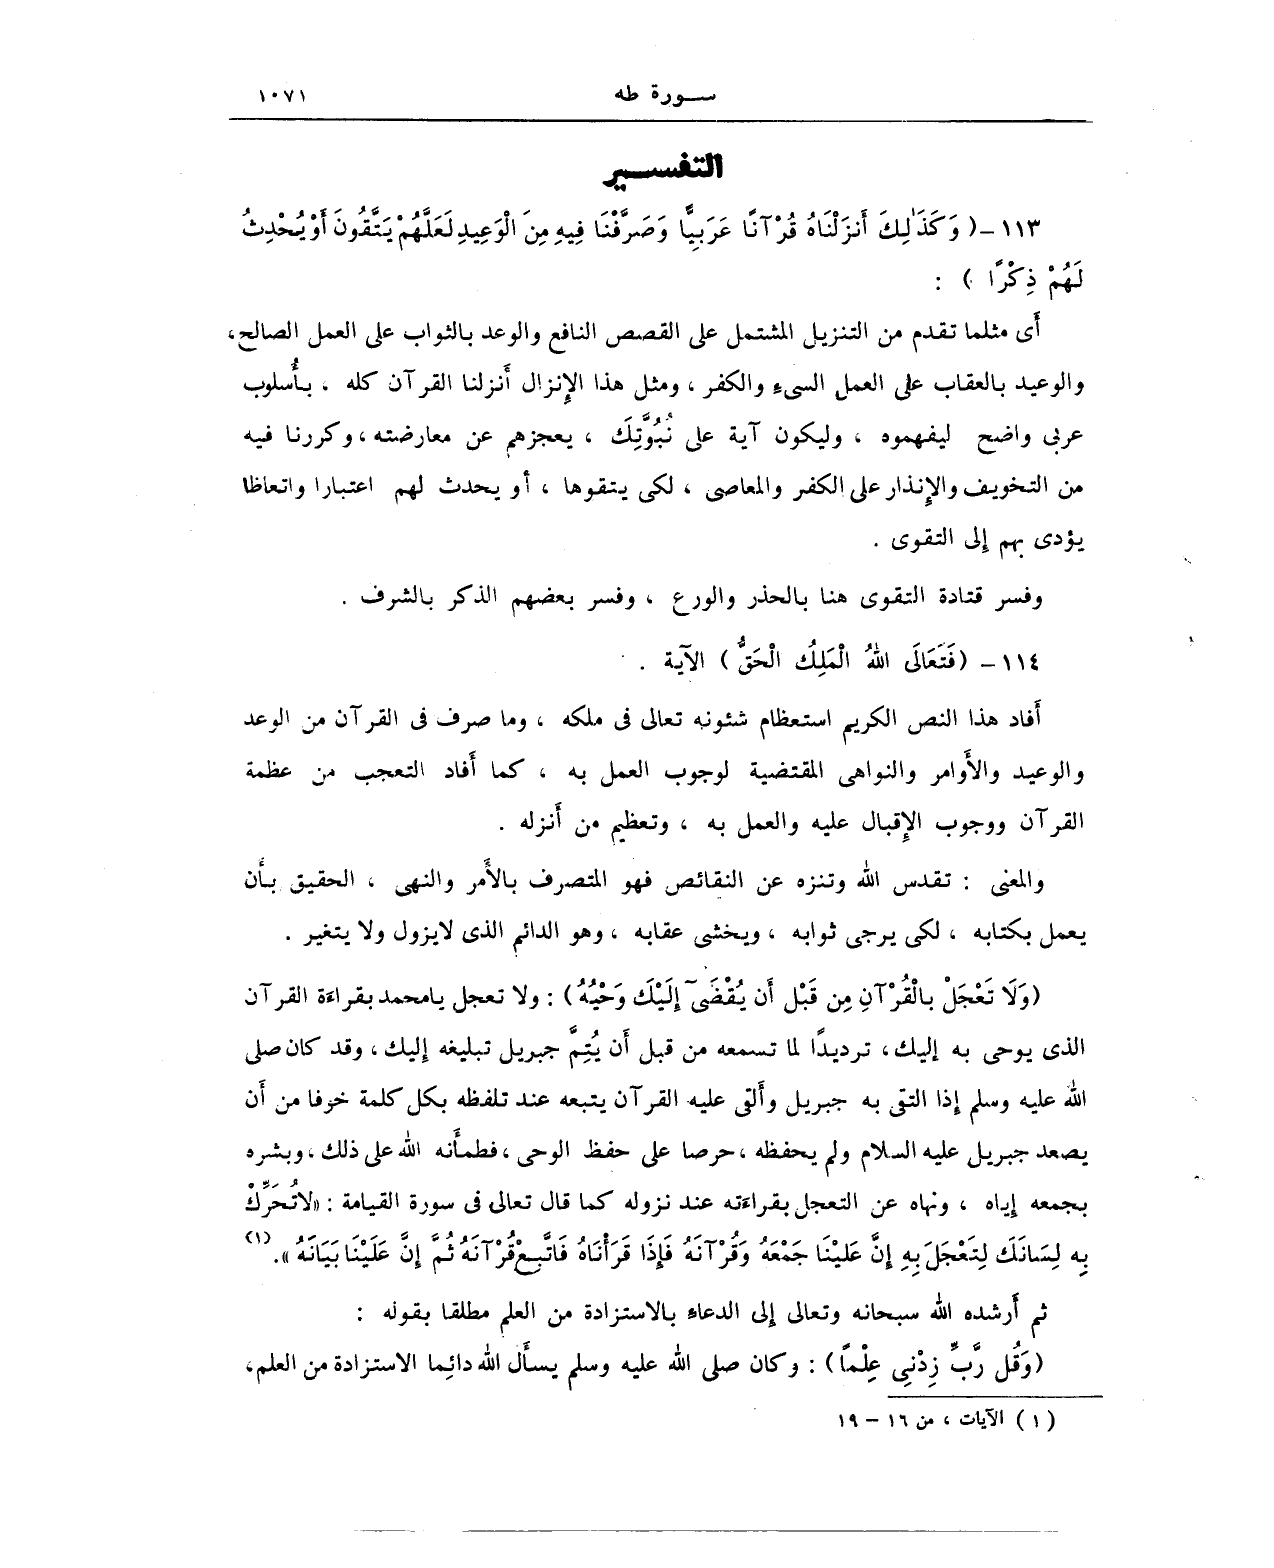 سورة طه ١٠٧١
التفسير
١١٣ – ( وَكَذَٰلِكَ أَنزَلْنَاهُ قُرْآنًا عَرَبِيًّا وَصَرَّفْنَا فِيهِ مِنَ الْوَعِيدِ لَعَلَّهُمْ يَتَّقُونَ أَوْ يُحْدِثُ
لَهُمْ ذِكْرًا ) :
أى مثلما تقدم من التنزيل المشتمل على القصص النافع والوعد بالثواب على العمل الصالح،
والوعيد بالعقاب على العمل السىء والكفر ، ومثل هذا الإنزال أنزلنا القرآن كله ، بأُسلوب
عربى واضح ليفهموه ، وليكون آية على نُبُوَّتِكَ ، يعجزهم عن معارضته ، وكررنا فيه
من التخويف والإنذار على الكفر والمعاصى ، لكى يتقوها ، أو يحدث لهم اعتبارا واتعاظا
يؤدى بهم إلى التقوى .
وفسر قتادة التقوى هنا بالحذر والورع ، وفسر بعضهم الذكر بالشرف .
١١٤ – ( فَتَعَالَى اللهُ الْمَلِكُ الْحَقُّ ) الآية .
أَفاد هذا النص الكريم استعظام شئونه تعالى فى ملكه ، وما صرف فى القرآن من الوعد
والوعيد والأَوامر والنواهى المقتضية لوجوب العمل به ، كما أَفاد التعجب من عظمة
القرآن ووجوب الإقبال عليه والعمل به ، وتعظيم من أَنزله .
والمعنى : تقدس الله وتنزه عن النقائص فهو المتصرف بالأَمر والنهى ، الحقيق بأَن
يعمل بكتابه ، لكى يرجى ثوابه ، ويخشى عقابه ، وهو الدائم الذى لا يزول ولا يتغير .
( وَلَا تَعْجَلْ بِالْقُرْآنِ مِن قَبْلِ أَن يُقْضَىٰٓ إِلَيْكَ وَحْيُهُ ) : ولا تعجل يامحمد بقراءة القرآن
الذى يوحى به إليك ، ترديدًا لما تسمعه من قبل أَن يُتِمَّ جبريل تبليغه إليك ، وقد كان صلى
الله عليه وسلم إذا التقى به جبريل وأَلقى عليه القرآن يتبعه عند تلفظه بكل كلمة خوفا من أَن
يصعد جبريل عليه السلام ولم يحفظه ، حرصا على حفظ الوحى ، فطمأَنه الله على ذلك ، وبشره
بجمعه إياه ، ونهاه عن التعجل بقراءته عند نزوله كما قال تعالى فى سورة القيامة : «لَا تُحَرِّكْ
بِهِ لِسَانَكَ لِتَعْجَلَ بِهِ إِنَّ عَلَيْنَا جَمْعَهُ وَقُرْآنَهُ فَإِذَا قَرَأْنَاهُ فَاتَّبِعْ قُرْآنَهُ ثُمَّ إِنَّ عَلَيْنَا بَيَانَهُ » . (١)
ثم أَرشده الله سبحانه وتعالى إلى الدعاء بالاستزادة من العلم مطلقا بقوله :
( وَقُل رَّبِّ زِدْنِى عِلْمًا ) : وكان صلى الله عليه وسلم يسأَل الله دائما الاستزادة من العلم،
(١) الآيات ، من ١٦ – ١٩